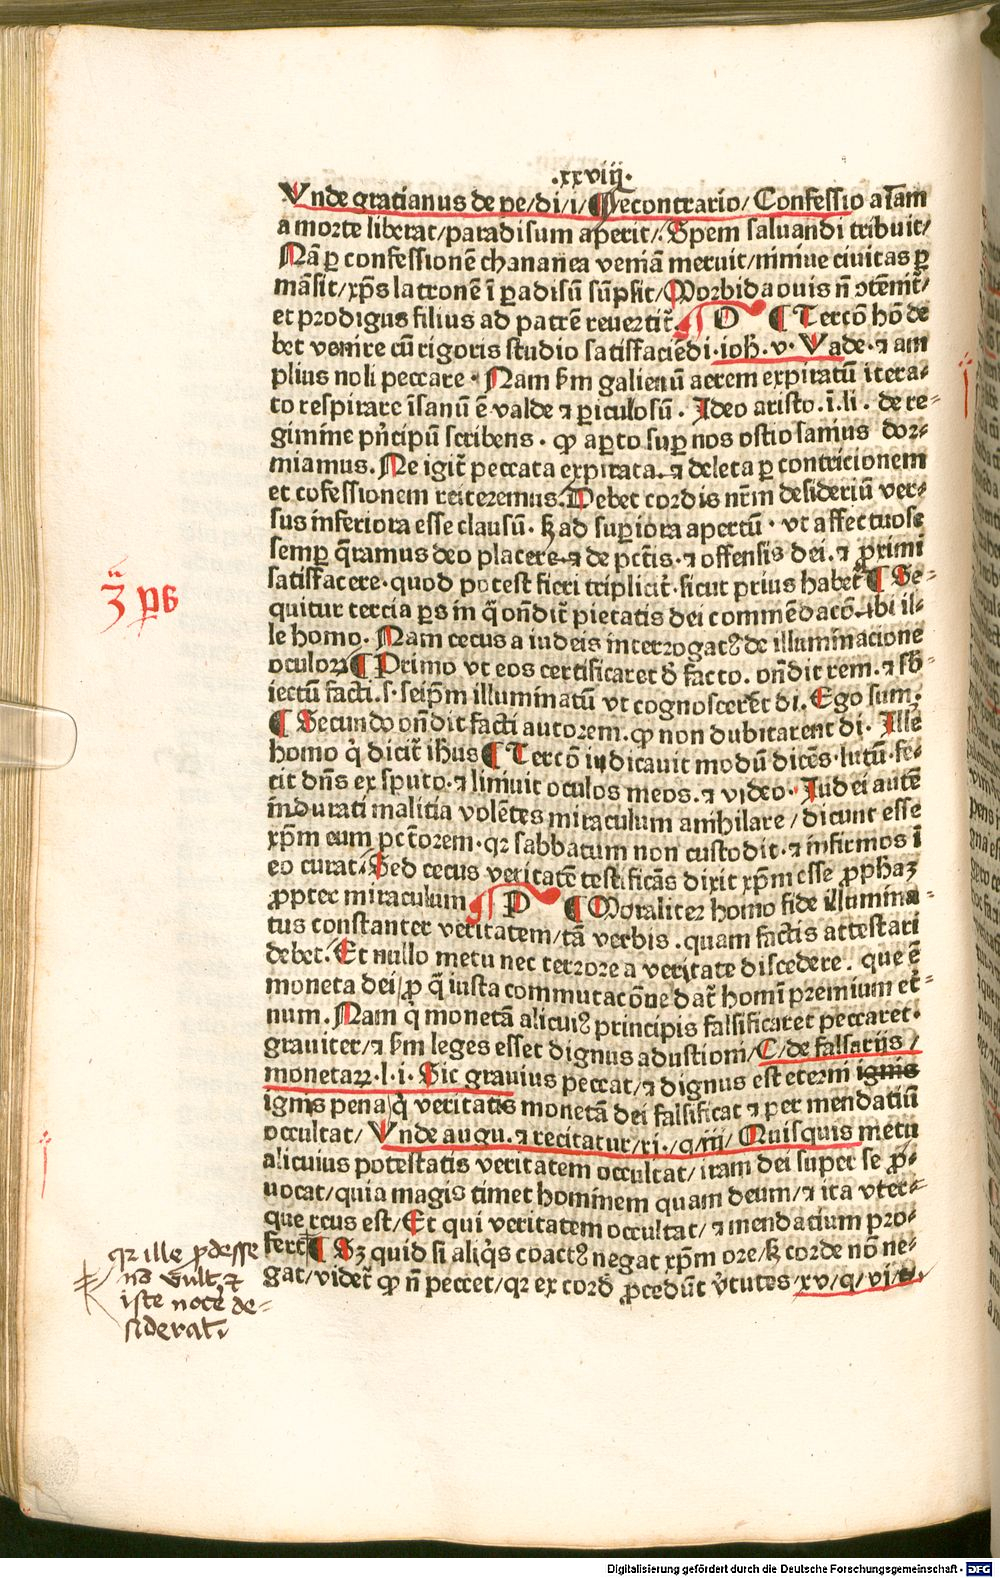 .xxviij.
Vnde gratianus de pe/di/i/ ¶ Econtrario/ Confessio aīam
a morte liberat/paradisum aperit/. Spem saluandi tribuit/
Nā ꝑ confessionē chananea veniā meruit/niniue ciuitas ꝑ
māsit/xp̄s latronē ī ꝑadisū sūpsit/Morbida ouis nō ↄtēnit̄/
et prodigus filius ad patrē reuertit̄. ¶ O ¶ Tercō hō de
bet venire cū rigoris studio satisfaciēdi.ioh̄.v. Vade.⁊ am
plius noli peccare. Nam ẜm galienū aerem expiratū itera⸗
to respirare īsanū ē valde ⁊ ꝑiculosū. Ideo aristo.ī.li. de re⸗
gimine pn̄cipū scribens. ꝙ aꝑto suꝑ nos ostio sanius dor⸗
miamus. Ne igit̄ peccata expirata.⁊ deleta ꝑ contricionem
et cōfessionem reiteremus. Debet cordis nr̄m desideriū ver⸗
sus inferiora esse clausū. ꝫ ad suꝑiora apertū. vt affectuose
semꝑ q̄ramus deo placere ⁊ de pctīs.⁊ offensis dei.⁊ ꝓximi
satisfacere.quod potest fieri triplicit̄.sicut prius habet̄ ¶ Se⸗
quitur tercia ps in q̄ ondit̄ pietatis dei commēdacō.ibi il⸗
le homo. Nam cecus a iudeis interrogatꝰ de illuminacione
oculoꝝ ¶ Primo vt eos certificaret đ facto. ondit rem.⁊ sb̄⸗
iectū facti.s.seip̄m illuminatū vt cognosceret̄ di. Ego sum.
¶ Secundo ondit facti autorem.ꝙ non dubitarent di. Ille
homo q̇ dicit̄ ih̄us ¶ Tercō indicauit modū dicēs.lutū.fe⸗
cit dn̄s ex sputo.⁊ liniuit oculos meos.⁊ video. Iudei autē
indurati malitia volētes miraculum anihilare/dicunt esse
xp̄m eum pctōrem.qꝛ sabbatum non custodit.⁊ infirmos ī
eo curat/. Sed cecus veritatē testificās dixit xp̄m esse ꝓphaꝫ
ꝓpter miraculum ¶ P ¶ Moraliter homo fide illumina⸗
tus constanter veritatem/tā verbis.quam factis attestari
debet/. Et nullo metu nec terrore a veritate discedere. que ē
moneta dei/ꝓ q̄ iusta commutacōne dat̄ homī premium et̄⸗
num. Nam q̇ monetā alicuiꝰ principis falsificaret peccaret.
grauiter/⁊ ẜm leges esset dignus adustioni/C/de falsarijs/
monetaꝝ.l.i. Sic grauius peccat/⁊ dignus est eterni ignis
ignis pena/q̇ veritatis monetā dei falsificat ⁊ per mendatiū
occultat/ Vnde augu.⁊ recitatur/xi./q/iii/ Quisquis metu
alicuius potestatis veritatem occultat/iram dei super se ꝓ⸗
uocat/quia magis timet hominem quam deum/⁊ ita vter⸗
que reus est/Et qui veritatem occultat/⁊ mendatium pro⸗
fert ¶ Sꝫ quid si aliq̇s coactꝰ negat xp̄m ore/ꝫ corde nō ne⸗
gat/videt̄ ꝙ n̄ peccet/qꝛ ex cord ꝓcedūt v̄tutes/xv/q/vi/
3ā ps
qꝛ ille ꝓdesse
nō vult ⁊
iste nocē de⸗
siderat.
Digitalisierung gefördert durch die Deutsche Forschungsgemeinschaft - DFG